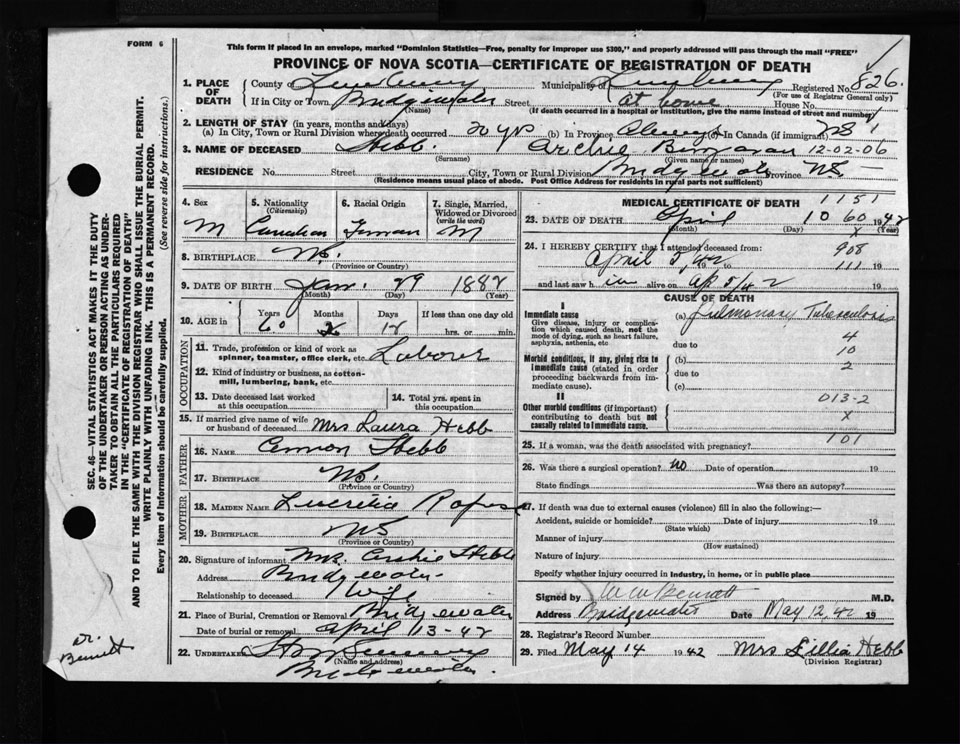 FORM 6
This form if placed in an envelope, marked "Dominion Statistics—Free, penalty for improper use $300," and properly addressed will pass through the mail "FREE"
PROVINCE OF NOVA SCOTIA—CERTIFICATE OF REGISTRATION OF DEATH
1. PLACE OF DEATH County of Lunenburg Municipality of Lunenburg Registered No. 826
(For use of Registrar General only)
If in City or Town Bridgewater Street at home House No.
(Name) (If death occurred in a hospital or institution, give name instead of street and number)
2. LENGTH OF STAY (in years, months and days)
(a) In City, Town or Rural Division where death occurred 20 yrs (b) In Province Always (c) In Canada (if immigrant) NS
3. NAME OF DECEASED Hebb Archie 12-02-06
(Surname) (Given name or names)
RESIDENCE No. Street City, Town or Rural Division Bridgewater Province N.S.
(Residence means usual place of abode. Post Office Address for residents in rural parts not sufficient)
4. Sex M
5. Nationality (Citizenship) Canadian
6. Racial Origin German
7. Single, Married, Widowed or Divorced (write the word) M
8. BIRTHPLACE N.S.
(Province or Country)
9. DATE OF BIRTH Jan. 29 1882
(Month) (Day) (Year)
10. AGE in Years Months Days If less than one day old
60 2 12 hrs. or min.
OCCUPATION
11. Trade, profession or kind of work as spinner, teamster, office clerk, etc. Laborer
12. Kind of industry or business, as cotton-mill, lumbering, bank, etc.
13. Date deceased last worked at this occupation
14. Total yrs. spent in this occupation
15. If married give name of wife or husband of deceased Mrs Laura Hebb
FATHER
16. NAME Hebb
17. BIRTHPLACE N.S.
(Province or Country)
MOTHER
18. MAIDEN NAME Lucretia
19. BIRTHPLACE N.S
(Province or Country)
20. Signature of informant Mrs. Archie Hebb
Address Bridgewater
Relationship to deceased Wife
21. Place of Burial, Cremation or Removal Bridgewater
Date of burial or removal April 13-42
22. UNDERTAKER
(Name and address)
Bridgewater.
MEDICAL CERTIFICATE OF DEATH 1151
23. DATE OF DEATH April 10 60 1942
(Month) (Day) X (Year)
24. I HEREBY CERTIFY that I attended deceased from: 908
April 5/42 to 111 19
and last saw him alive on Ap 5/42 19
CAUSE OF DEATH
I
Immediate cause
Give disease, injury or complication which caused death, not the mode of dying, such as heart failure, asphyxia, asthenia, etc
(a) Pulmonary Tuberculosis
4
due to
10
Morbid conditions, if any, giving rise to immediate cause (stated in order proceeding backwards from immediate cause).
(b) 2
due to
(c)
II
013-2
Other morbid conditions (if important) contributing to death but not causally related to immediate cause.
X
101
25. If a woman, was the death associated with pregnancy?
26. Was there a surgical operation? no Date of operation 19
State findings Was there an autopsy?
27. If death was due to external causes (violence) fill in also the following:—
Accident, suicide or homicide? Date of injury 19
(State which)
Manner of injury
(How sustained)
Nature of injury
Specify whether injury occurred in industry, in home, or in public place
Signed by Bennett M.D.
Address Bridgewater Date May 12, 42 19
28. Registrar's Record Number
29. Filed May 14 1942 Mrs Lillia Hebb
(Division Registrar)
SEC. 46—VITAL STATISTICS ACT MAKES IT THE DUTY
OF THE UNDERTAKER OR PERSON ACTING AS UNDER-
TAKER TO OBTAIN ALL THE PARTICULARS REQUIRED
IN THE "CERTIFICATE OF REGISTRATION OF DEATH"
AND TO FILE THE SAME WITH THE DIVISION REGISTRAR WHO SHALL ISSUE THE BURIAL PERMIT.
WRITE PLAINLY WITH UNFADING INK. THIS IS A PERMANENT RECORD.
Every item of information should be carefully supplied. (See reverse side for instructions.)
Dr.
Bennett